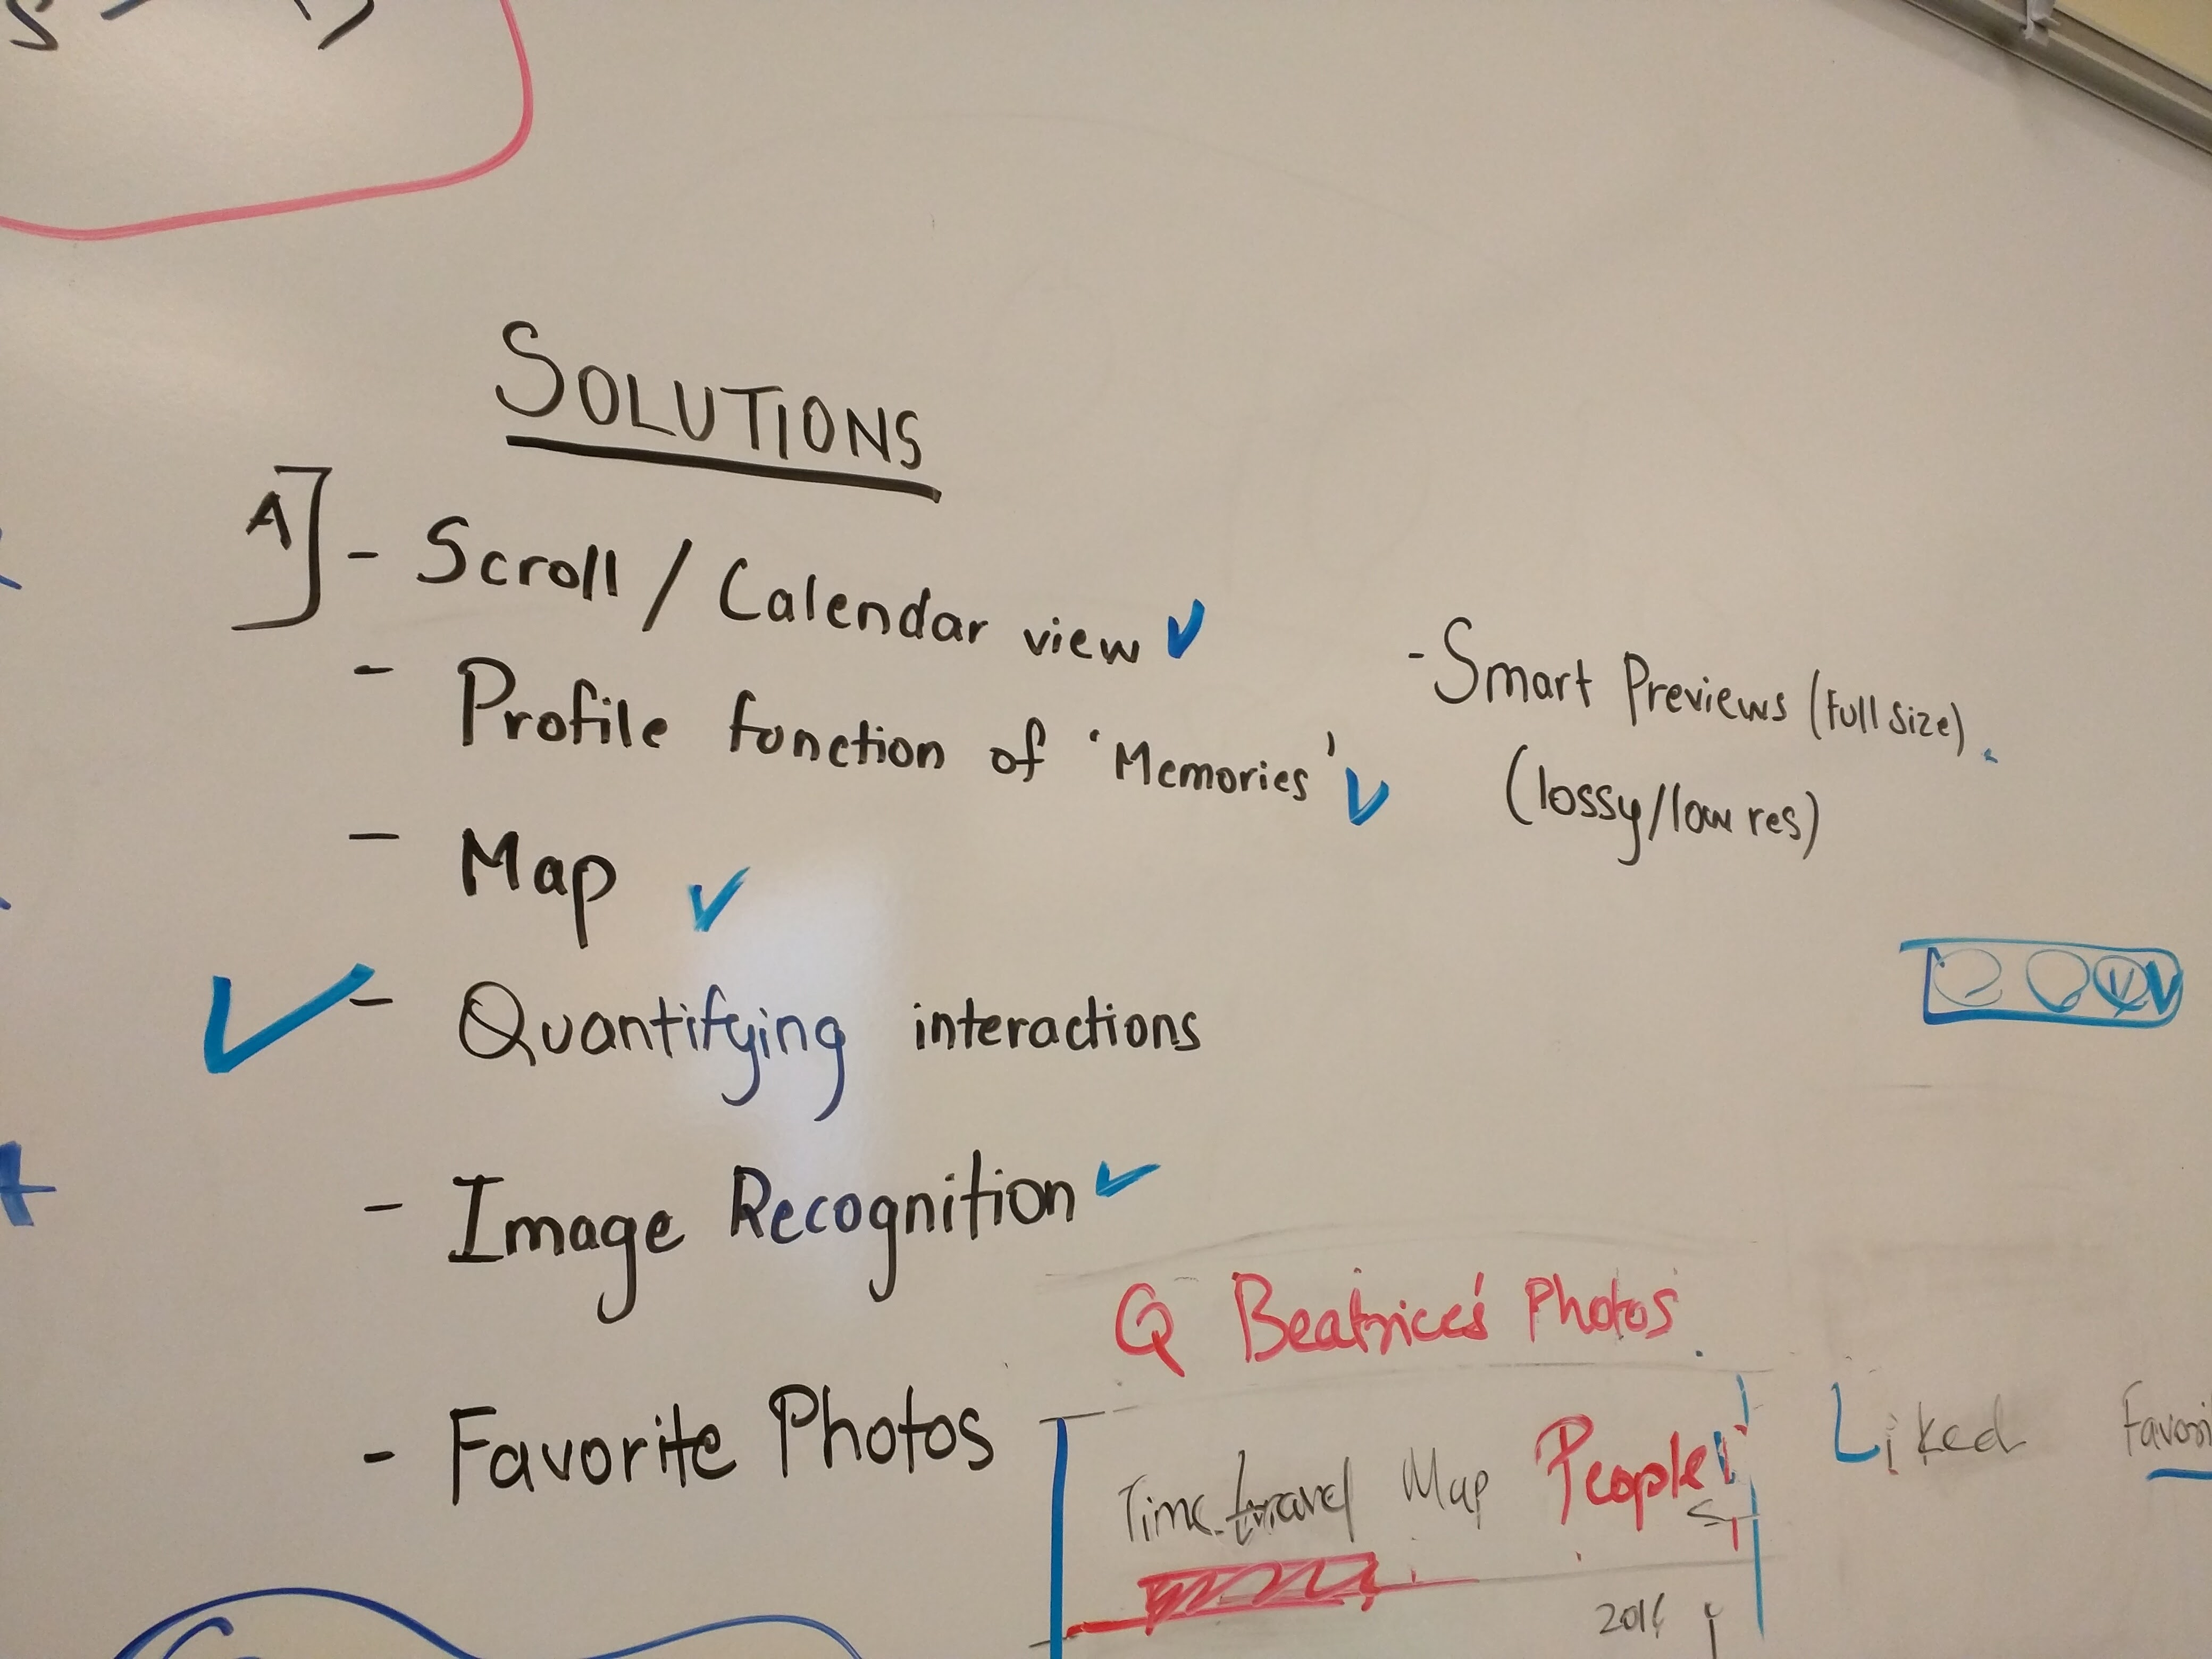 SOLUTIONS
A] - Scroll / Calendar view ✓
- Profile function of 'Memories' ✓
- Map ✓
✓ - Quantifying interactions
- Image Recognition ✓
- Favorite Photos
- Smart Previews (full size).
(lossy/low res)
Q Beatrice's Photos
Time travel Map People
Liked
2016